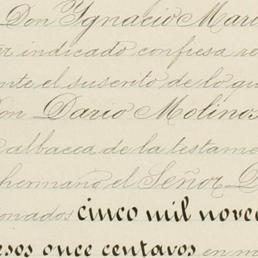 Don Ygnacio Mari
indicado confiesa re
ante el suscrito de lo qu
Don Dario Molinos
albacea de la testame
hermano el Señor D
onados cinco mil nove
esos once centavos en m